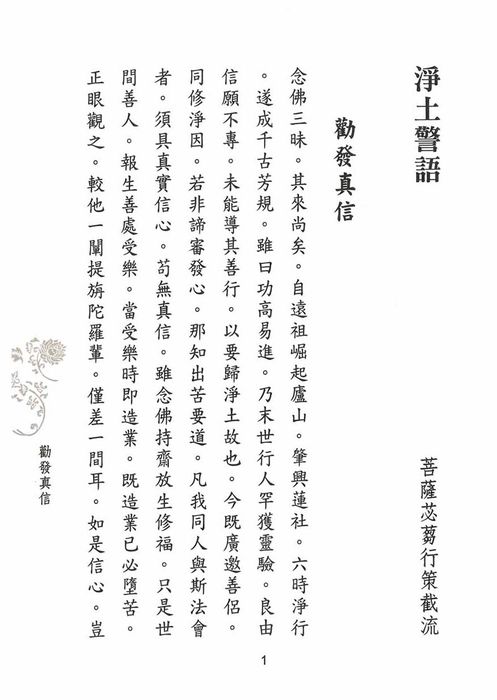 淨土警語
菩薩苾蒭行策截流
勸發真信
念佛三昧。其來尚矣。自遠祖崛起廬山。肇興蓮社。六時淨行
。遂成千古芳規。雖曰功高易進。乃末世行人罕獲靈驗。良由
信願不專。未能導其善行。以要歸淨土故也。今既廣邀善侶。
同修淨因。若非諦審發心。那知出苦要道。凡我同人與斯法會
者。須具真實信心。苟無真信。雖念佛持齋放生修福。只是世
間善人。報生善處受樂。當受樂時即造業。既造業已必墮苦。
正眼觀之。較他一闡提旃陀羅輩。僅差一間耳。如是信心。豈
勸發真信
1